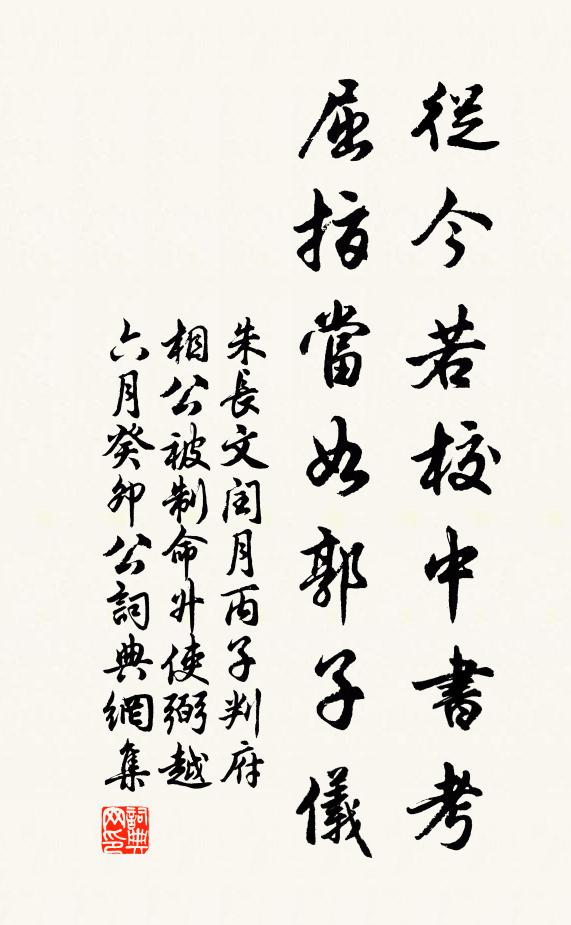 從今若校中書考
屈指當如郭子儀
朱長文閏月丙子判府
相公被制命升使弼越
六月癸卯公詞典網集
詞典
网印